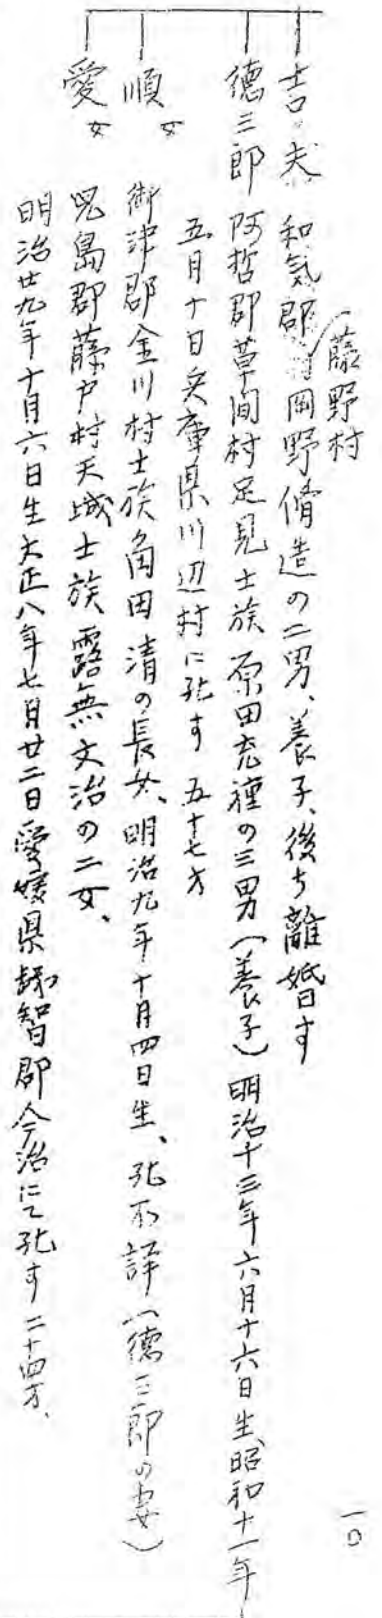 藤野村
吉夫 和気郡 岡野脩造の二男、養子、後ち離婚す
徳三郎 阿哲郡草間村足見士族 原田充種の三男(養子)明治十三年六月十六日生、昭和十一年
五月十日兵庫県川辺村に死す 五十七才
順 女 御津郡金川村士族 角田清の長女、明治九年十月四日生、死不詳(徳三郎の妻)
愛 女 児島郡藤戸村天城士族 露無文治の二女、
明治廿九年十月六日生 大正八年七月廿二日 愛媛県越智郡今治にて死す 二十四才、
一〇